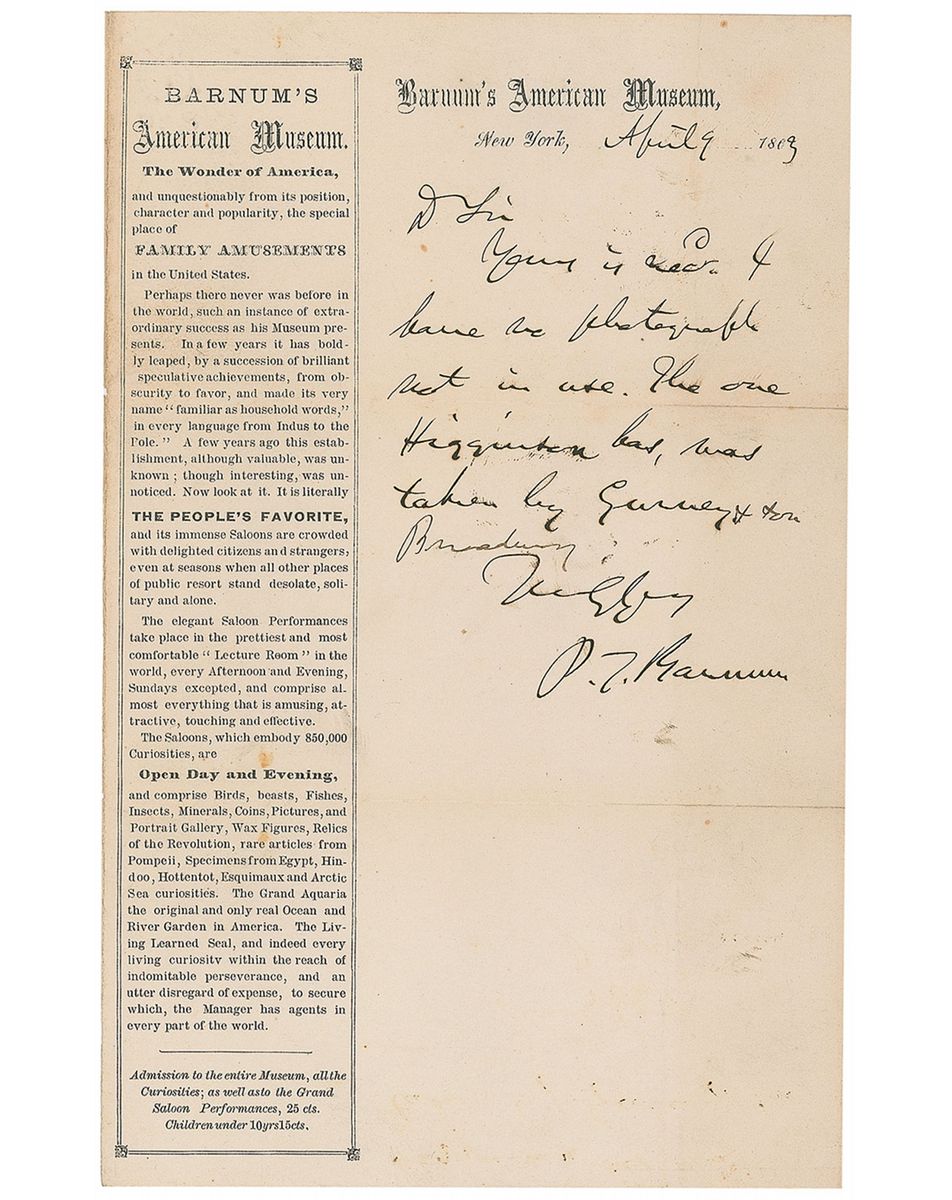 BARNUM'S
American Museum.
The Wonder of America,
and unquestionably from its position,
character and popularity, the special
place of
FAMILY AMUSEMENTS
in the United States.
Perhaps there never was before in
the world, such an instance of extra-
ordinary success as his Museum pre-
sents. In a few years it has bold-
ly leaped, by a succession of brilliant
speculative achievements, from ob-
scurity to favor, and made its very
name "familiar as household words,"
in every language from Indus to the
Pole." A few years ago this estab-
lishment, although valuable, was un-
known; though interesting, was un-
noticed. Now look at it. It is literally
THE PEOPLE'S FAVORITE,
and its immense Saloons are crowded
with delighted citizens and strangers,
even at seasons when all other places
of public resort stand desolate, soli-
tary and alone.
The elegant Saloon Performances
take place in the prettiest and most
comfortable "Lecture Room" in the
world, every Afternoon and Evening,
Sundays excepted, and comprise al-
most everything that is amusing, at-
tractive, touching and effective.
The Saloons, which embody 850,000
Curiosities, are
Open Day and Evening,
and comprise Birds, beasts, Fishes,
Insects, Minerals, Coins, Pictures, and
Portrait Gallery, Wax Figures, Relics
of the Revolution, rare articles from
Pompeii, Specimens from Egypt, Hin-
doo, Hottentot, Esquimaux and Arctic
Sea curiosities. The Grand Aquaria
the original and only real Ocean and
River Garden in America. The Liv-
ing Learned Seal, and indeed every
living curiosity within the reach of
indomitable perseverance, and an
utter disregard of expense, to secure
which, the Manager has agents in
every part of the world.
Admission to the entire Museum, all the
Curiosities; as well as to the Grand
Saloon Performances, 25 cts.
Children under 10 yrs 15 cts.
Barnum's American Museum,
New York, April 9 1863
D Sir
Yours is recd. I
have no photograph
not in use. The one
Higginson has, was
taken by Gurney & Son
Broadway.
P. T. Barnum